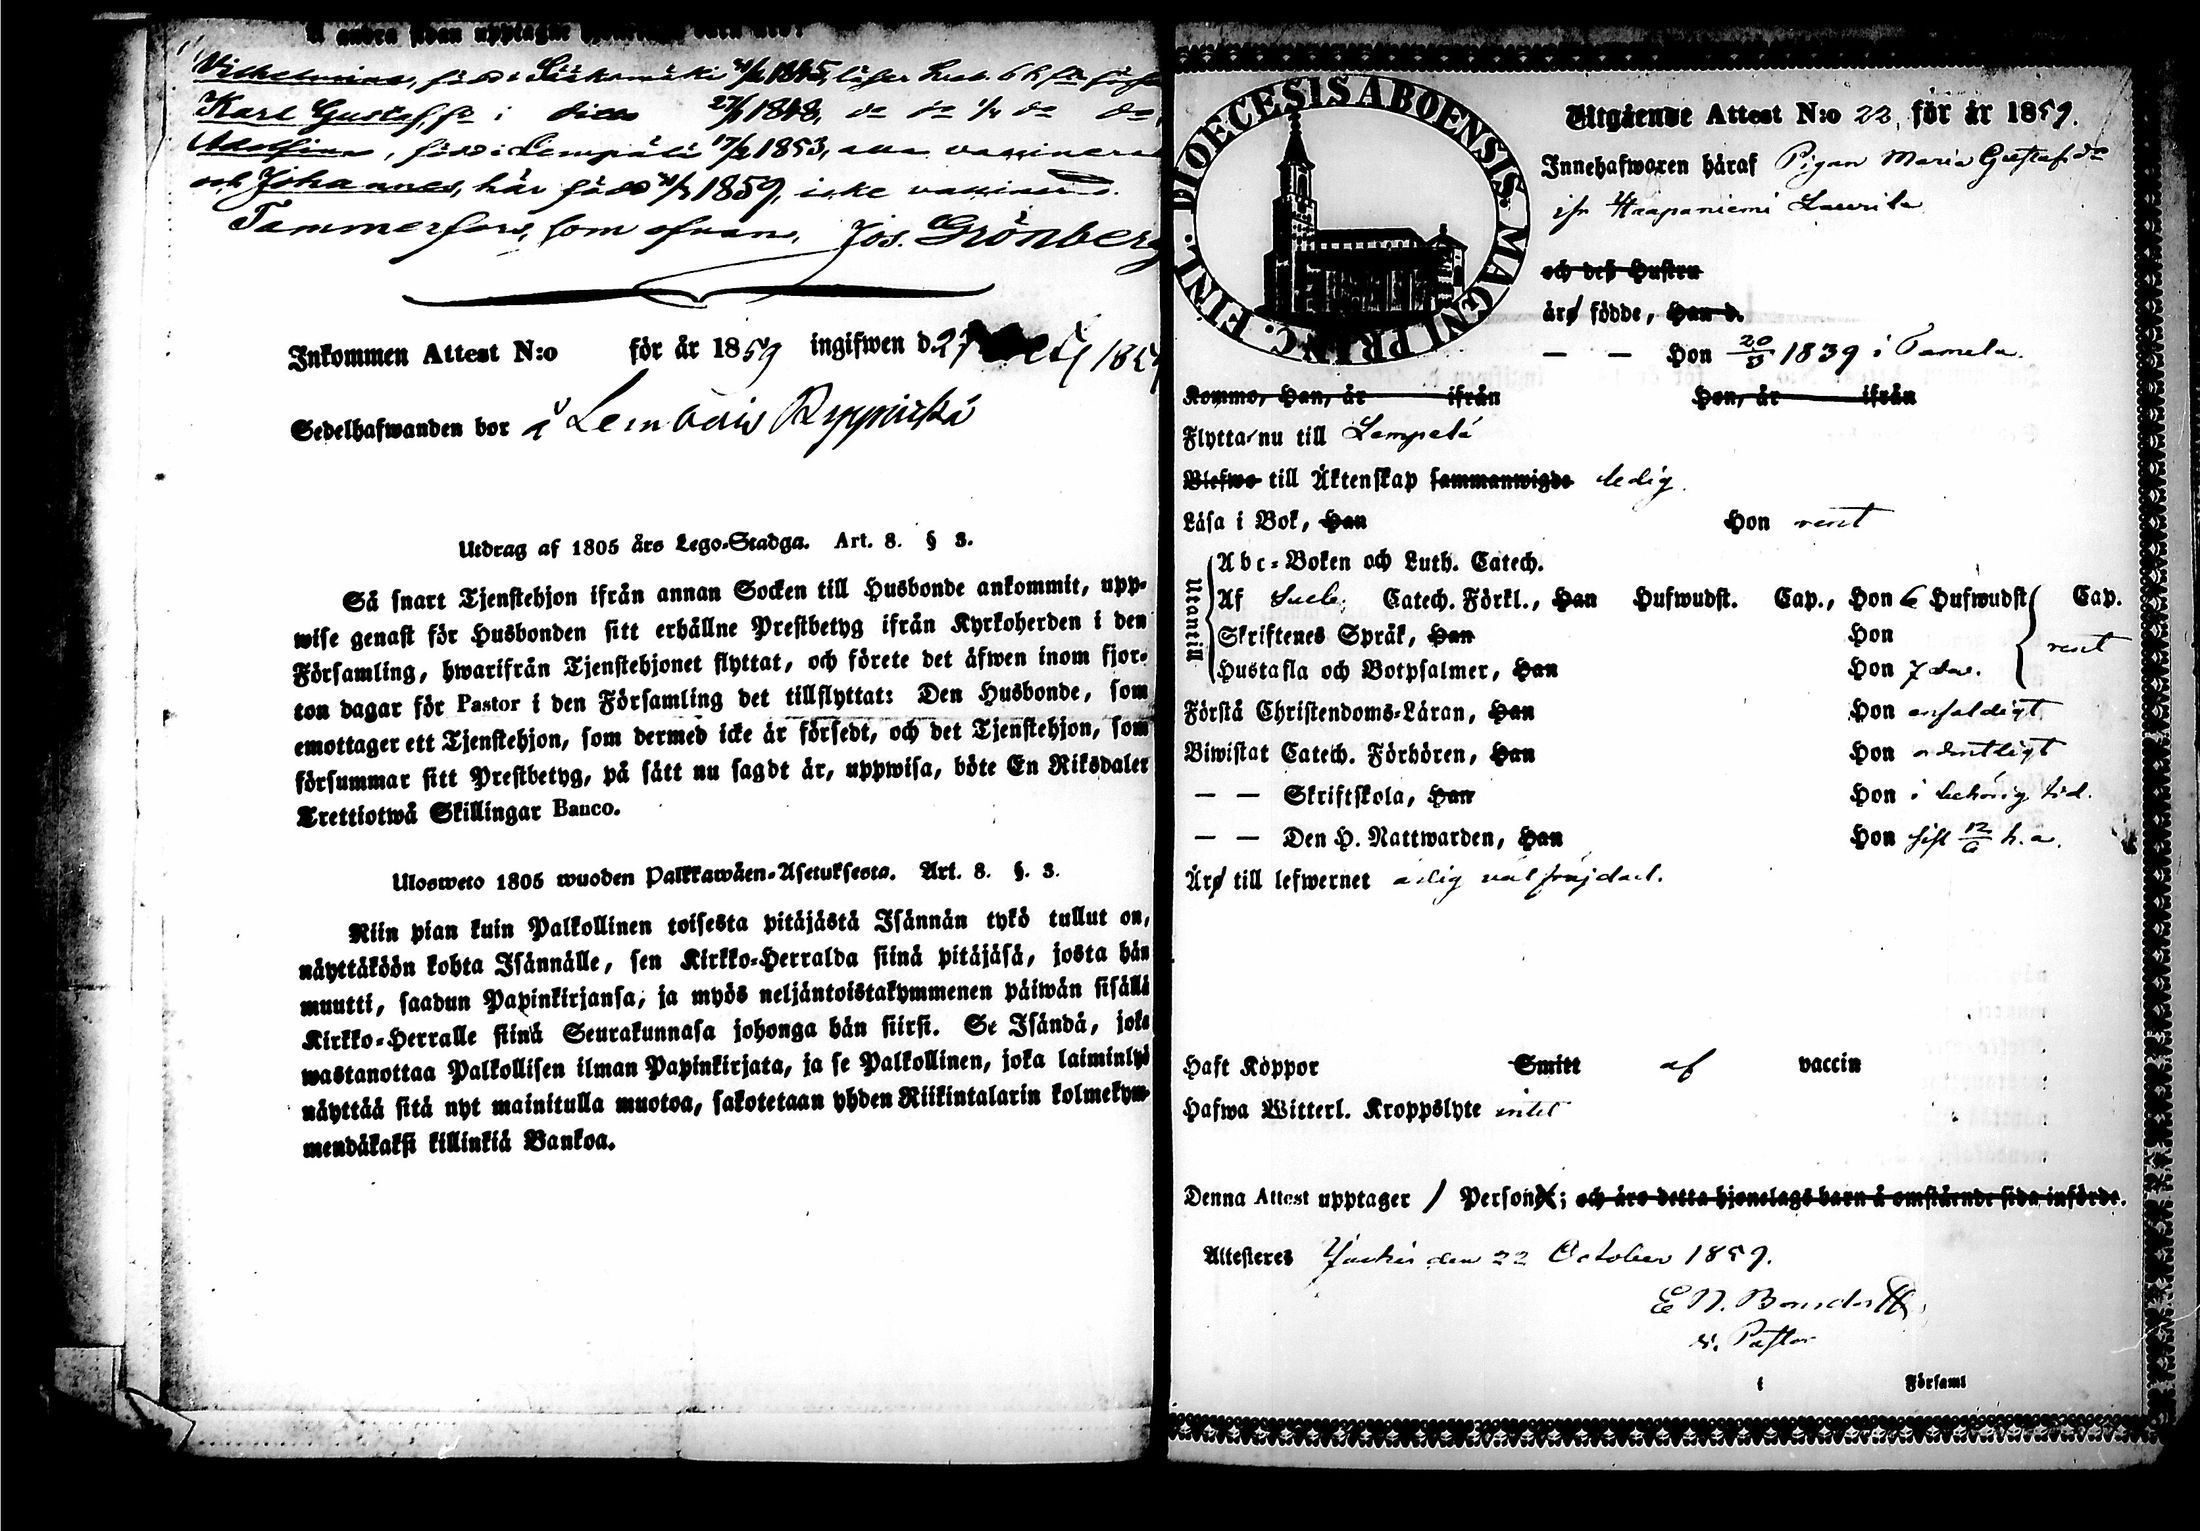 Å andra sidan upptagne
Wilhelmina, född i Sääksmäki 1845, läser
Karl Gustaf, fö i ditto 27/1 1848, do do 1/2 do do
Adolfina, född i Lempälä 17/2 1853, alla vaccinerade
och Johannes, här född 1859, icke vaccinerad.
Tammerfors, som ofvan, Jos. Grönberg
Inkommen Attest N:o för år 1859 ingifwen d. 27 1859
Sedelhafwanden bor å Lembois
Utdrag af 1805 års Lego-Stadga. Art. 8. § 3.
Så snart Tjenstehjon ifrån annan Socken till Husbonde ankommit, upp-
wise genast för Husbonden sitt erhållne Prestbetyg ifrån Kyrkoherden i den
Församling, hwarifrån Tjenstehjonet flyttat, och förete det äfwen inom fjor-
ton dagar för Pastor i den Församling det tillflyttat: Den Husbonde, som
emottager ett Tjenstehjon, som dermed icke är försedt, och det Tjenstehjon, som
försummar sitt Prestbetyg, på sätt nu sagdt är, uppwisa, böte En Riksdaler
Trettiotwå Skillingar Banco.
Ulosweto 1805 wuoden Palkkawäen-Asetuksesta. Art. 8. §. 3.
Niin pian kuin Palkollinen toisesta pitäjästä Isännän tykö tullut on,
näyttäköön kohta Isännälle, sen Kirkko-Herralda siinä pitäjäsä, josta hän
muutti, saadun Papinkirjansa, ja myös neljäntoistakymmenen päiwän sisällä
Kirkko-Herralle siinä Seurakunnasa johonga hän siirsi. Se Isändä, joka
wastanottaa Palkollisen ilman Papinkirjata, ja se Palkollinen, joka laiminlyö
näyttää sitä nyt mainitulla muotoa, sakotetaan yhden Riikintalarin kolmekym-
mendäkaksi killinkiä Bankoa.
DIOECESIS ABOENSIS. MAGNI PRINC. FINL.
Utgående Attest N:o 22, för år 1859.
Innehafwaren häraf Pigan Maria Gustafsdr
ifr Haapaniemi Laurila
och deß Hustru
äro födde, Han d.
— — Hon 20/3 1839 i Tamela.
Komma, Han, år ifrån Hon, år ifrån
Flytta nu till Lempälä
Blefwo till Äktenskap sammanwigde ledig.
Läsa i Bok, Han Hon rent
Utantill
Abc-Boken och Luth. Catech.
Af Sveb. Catech. Förkl., Han Hufwudst. Cap., Hon 6 Hufwudst Cap.
Skriftenes Språk, Han Hon rent
Hustafla och Botpsalmer, Han Hon 7 dav.
Förstå Christendoms-Läran, Han Hon enfaldigt
Biwistat Catech. Förhören, Han Hon ordentligt
— — Skriftskola, Han Hon i behörig tid.
— — Den H. Nattwarden, Han Hon sist 12/6 h.a.
Äro till lefwernet ärlig väl frejdad.
Haft Koppor Smitt af vaccin
Hafwa Witterl. Kroppslyte intet
Denna Attest upptager 1 Person; och äro detta hjonelags barn å omstående sida införde.
Attesteres den 22 October 1859.
E N. Bonsdorff,
v. Pastor
i Församl